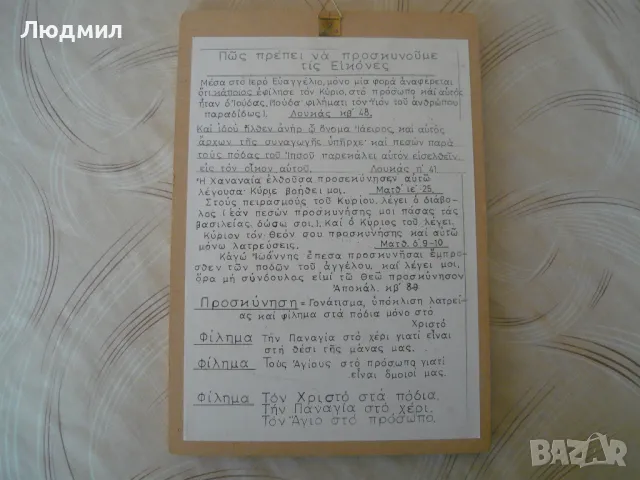 Людмил
Πῶς πρέπει νά προσκυνοῦμε
τίς Εἰκόνες
Μέσα στό Ἱερό Εὐαγγέλιο, μόνο μία φορά ἀναφέρεται
ὅτι κάποιος ἐφίλησε τόν Κύριο, στό πρόσωπο καί αὐτός
ἦταν ὁ Ἰούδας, Ἰούδα φιλήματι τόν Υἱόν τοῦ ἀνθρώπου
παραδίδως;). Λουκᾶς κβ΄ 48.
Καί ἰδού ἦλθεν ἀνήρ ᾧ ὄνομα Ἰάειρος, καί αὐτός
ἄρχων τῆς συναγωγῆς ὑπῆρχε· καί πεσών παρά
τούς πόδας τοῦ Ἰησοῦ παρεκάλει αὐτόν εἰσελθεῖν
εἰς τόν οἶκον αὐτοῦ. Λουκᾶς η΄ 41
Ἡ Χαναναία ἐλθοῦσα προσεκύνησεν αὐτῷ
λέγουσα· Κύριε βοήθει μοι. Ματθ. ιε΄ 25,
Στούς πειρασμούς τοῦ Κυρίου, λέγει ὁ διάβο-
λος (ἐάν πεσών προσκυνήσης μοι πάσας τάς
βασιλείας δώσω σοι,). Καί ὁ Κύριος τοῦ λέγει,
Κύριον τόν Θεόν σου προσκυνήσης καί αὐτῷ
μόνω λατρεύσεις. Ματθ. δ΄ 9-10
Κἀγώ Ἰωάννης ἔπεσα προσκυνῆσαι ἔμπρο-
σθεν τῶν ποδῶν τοῦ ἀγγέλου, καί λέγει μοι,
ὅρα μή σύνδουλος εἰμί τῷ Θεῷ προσκύνησον
Ἀποκάλ. κβ΄ 8-9
Προσκύνηση = Γονάτισμα, ὑπόκλιση λατρεί-
ας καί φίλημα στά πόδια μόνο στό
Χριστό
Φίλημα Τήν Παναγία στό χέρι γιατί εἶναι
στή θέσι τῆς μάνας μας.
Φίλημα Τούς Ἁγίους στό πρόσωπο γιατί
εἶναι ὅμοιοί μας.
Φίλημα Τόν Χριστό στά πόδια.
Τήν Παναγία στό χέρι.
Τόν Ἅγιο στό πρόσωπο.
BAZAR
bg